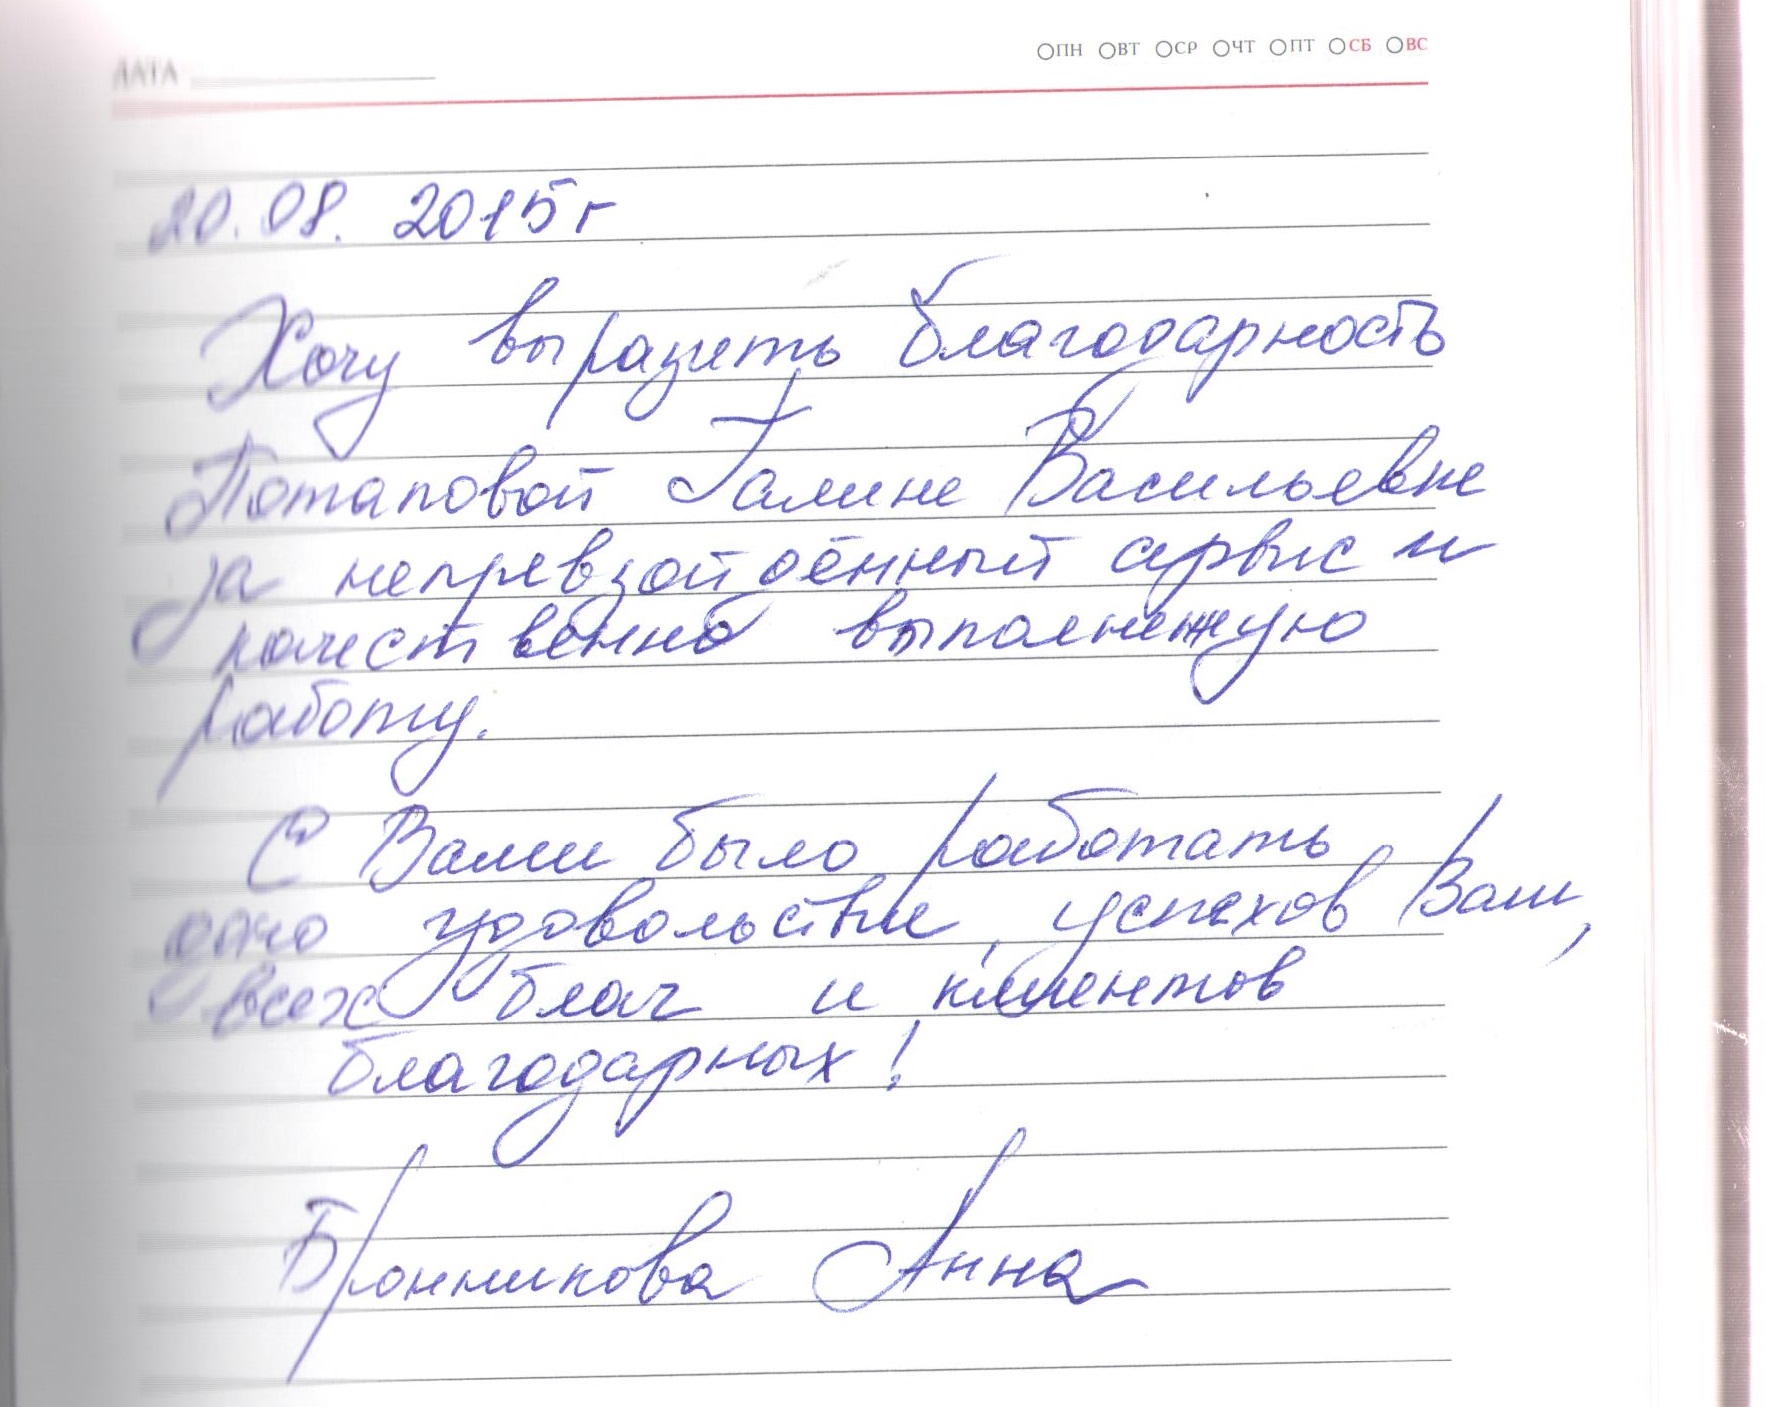 ДАТА ПН ВТ СР ЧТ ПТ СБ ВС
20.08. 2015г
Хочу выразить благодарность
Потаповой Галине Васильевне
за непревзойдённый сервис и
качественно выполненную
работу.
С Вами было работать
одно удовольствие, успехов Вам,
всех благ и клиентов
благодарных!
Бронникова Анна